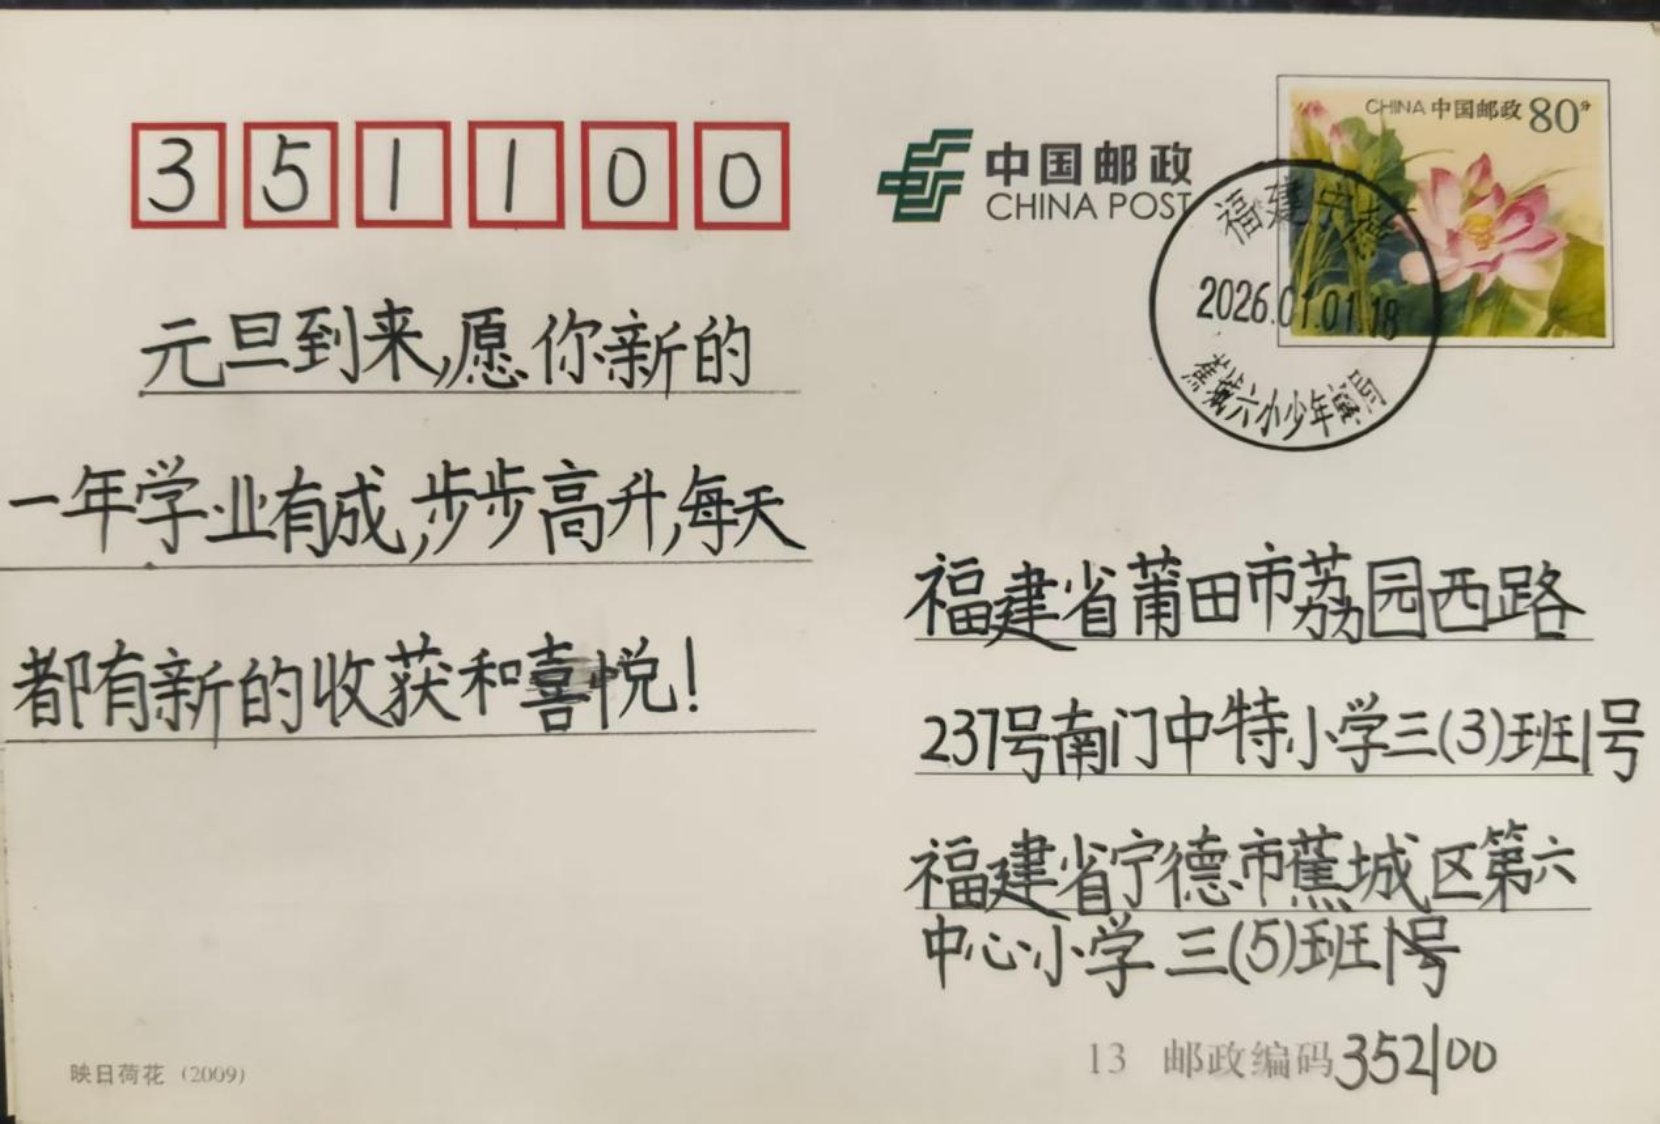 351100
中国邮政
CHINA POST
CHINA 中国邮政 80分
福建宁德
2026.01.01.18
蕉城六小少年邮局
元旦到来,愿你新的
一年学业有成,步步高升,每天
都有新的收获和喜悦!
福建省莆田市荔园西路
237号南门中特小学三(3)班1号
福建省宁德市蕉城区第六
中心小学 三(5)班1号
13 邮政编码352100
映日荷花 (2009)